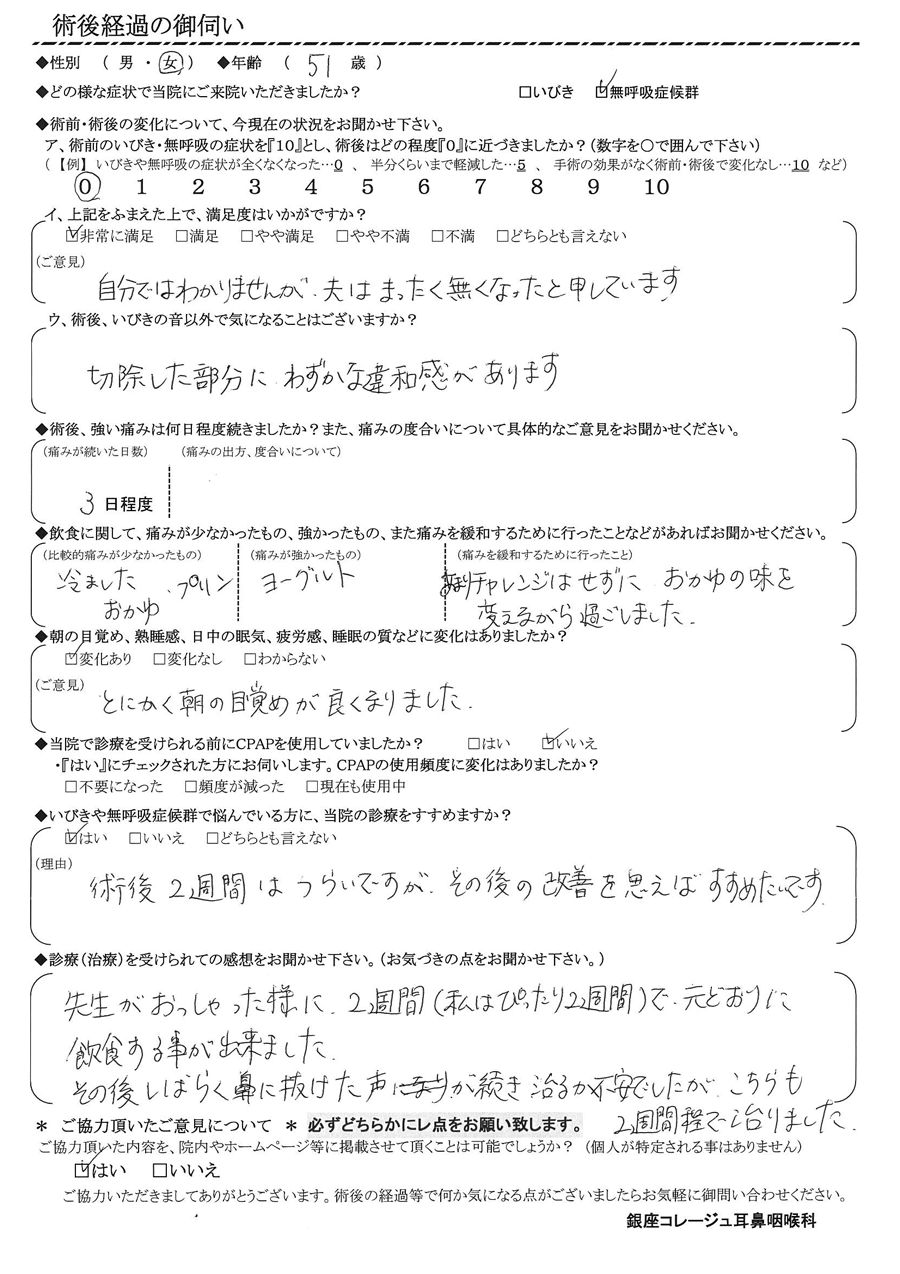 術後経過の御伺い
◆性別　（ 男 ・ 女 ）　◆年齢　（ 51 歳 ）
◆どの様な症状で当院にご来院いただきましたか？　□いびき　☑無呼吸症候群
◆術前・術後の変化について、今現在の状況をお聞かせ下さい。
ア、術前のいびき・無呼吸の症状を『10』とし、術後はどの程度『0』に近づきましたか？（数字を〇で囲んで下さい）
（ 【例】 いびきや無呼吸の症状が全くなくなった…0 、 半分くらいまで軽減した…5 、 手術の効果がなく術前・術後で変化なし…10 など）
0 1 2 3 4 5 6 7 8 9 10
イ、上記をふまえた上で、満足度はいかがですか？
☑非常に満足　□満足　□やや満足　□やや不満　□不満　□どちらとも言えない
（ご意見）
自分ではわかりませんが、夫はまったく無くなったと申しています
ウ、術後、いびきの音以外で気になることはございますか？
切除した部分に わずかな違和感があります
◆術後、強い痛みは何日程度続きましたか？また、痛みの度合いについて具体的なご意見をお聞かせください。
（痛みが続いた日数）　（痛みの出方、度合いについて）
3 日程度
◆飲食に関して、痛みが少なかったもの、強かったもの、また痛みを緩和するために行ったことなどがあればお聞かせください。
（比較的痛みが少なかったもの）　（痛みが強かったもの）　（痛みを緩和するために行ったこと）
冷ました おかゆ 、プリン
ヨーグルト
あまりチャレンジはせずに おかゆの味を
変えながら過ごしました.
◆朝の目覚め、熟睡感、日中の眠気、疲労感、睡眠の質などに変化はありましたか？
☑変化あり　□変化なし　□わからない
（ご意見）
とにかく朝の目覚めが良くなりました.
◆当院で診療を受けられる前にCPAPを使用していましたか？　□はい　☑いいえ
・『はい』にチェックされた方にお伺いします。CPAPの使用頻度に変化はありましたか？
□不要になった　□頻度が減った　□現在も使用中
◆いびきや無呼吸症候群で悩んでいる方に、当院の診療をすすめますか？
☑はい　□いいえ　□どちらとも言えない
（理由）
術後 2週間はつらいですが、その後の改善を思えばすすめたいです.
◆診療（治療）を受けられての感想をお聞かせ下さい。（お気づきの点をお聞かせ下さい。）
先生がおっしゃった様に、2週間（私はぴったり2週間）で、元どおりに
飲食する事が出来ました.
その後しばらく鼻に抜けた声が続き治るか不安でしたが、こちらも
2週間程で治りました.
＊ ご協力頂いたご意見について ＊ 必ずどちらかにレ点をお願い致します。
ご協力頂いた内容を、院内やホームページ等に掲載させて頂くことは可能でしょうか？（個人が特定される事はありません）
☑はい　□いいえ
ご協力いただきましてありがとうございます。術後の経過等で何か気になる点がございましたらお気軽に御問い合わせください。
銀座コレージュ耳鼻咽喉科